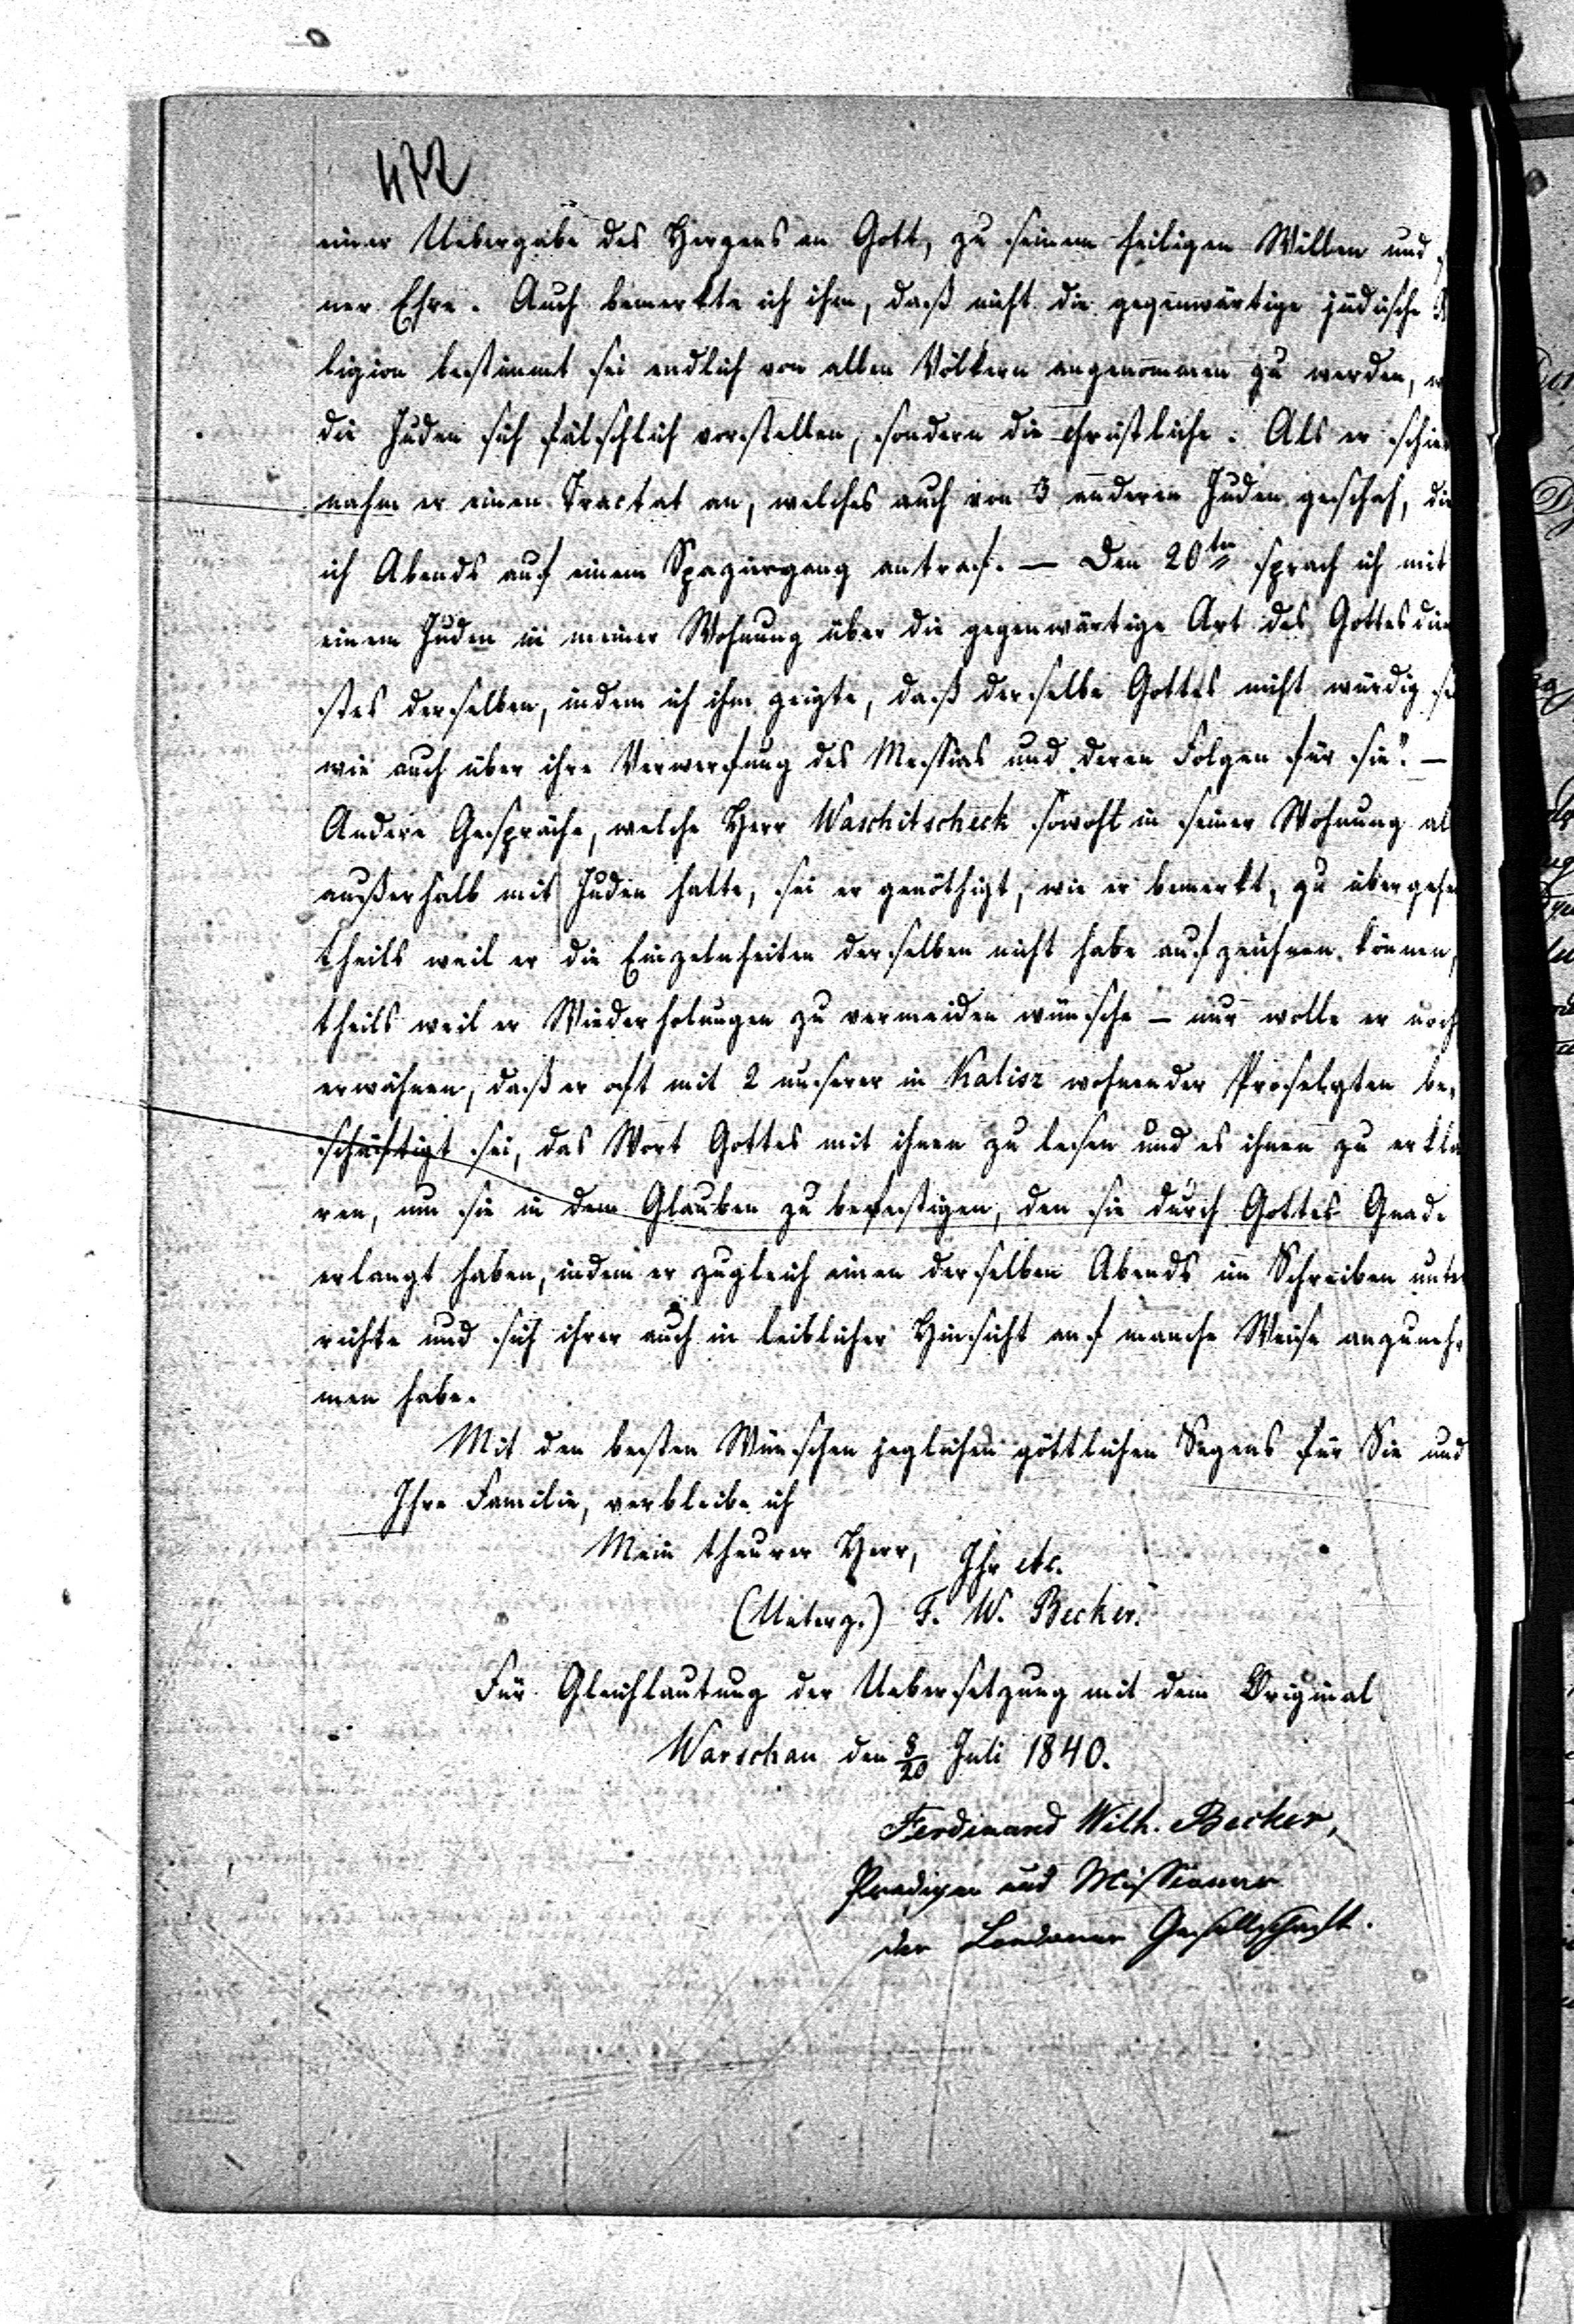 472
einer Uebergabe des Herzens an Gott, zu seinem heiligen Willen und
ner Ehre. Auch bemerkte ich ihm, daß nicht die gegenwärtige jüdische
ligion bestimmt sei endlich von allen Völkern angenommen zu werden,
die Juden sich fälschlich vorstellen, sondern die christliche. Als er schie
nahm er einen Tractat an, welches auch von 3 anderen Juden geschah, die
ich Abends auf einem Spaziergang antraf. — Den 20ten sprach ich mit
einem Juden in meiner Wohnung über die gegenwärtige Art des Gottesdien
stes derselben, indem ich ihm zeigte, daß derselbe Gottes nicht würdig se
wie auch über ihre Verwerfung des Messias und deren Folgen für sie." —
Andere Gespräche, welche Herr Waschitscheck sowohl in seiner Wohnung al
außerhalb mit Juden hatte, sei er genöthigt, wie er bemerkt, zu übergehe
theils weil er die Einzelnheiten derselben nicht habe aufzeichnen können,
theils weil er Wiederholungen zu vermeiden wünsche – nur wolle er noch
erwähnen, daß er oft mit 2 unserer in Kalisz wohnender Proselyten be-
schäftigt sei, das Wort Gottes mit ihnen zu lesen und es ihnen zu erklä
ren, um sie in dem Glauben zu befestigen, den sie durch Gottes Gnade
erlangt haben, indem er zugleich einen derselben Abends im Schreiben unte
richte und sich ihrer auch in leiblicher Hinsicht auf manche Weise anzuneh-
men habe.
Mit den besten Wünschen jeglichen göttlichen Segens für Sie und
Ihre Familie, verbleibe ich
Mein theurer Herr, Ihr etc.
(Unterz.) F. W. Becker.
Für Gleichlautung der Uebersetzung mit dem Original
Warschau den 8/20 Juli 1840.
Ferdinand Wilh. Becker,
Prediger und Missionar
der Londoner Gesellschaft.